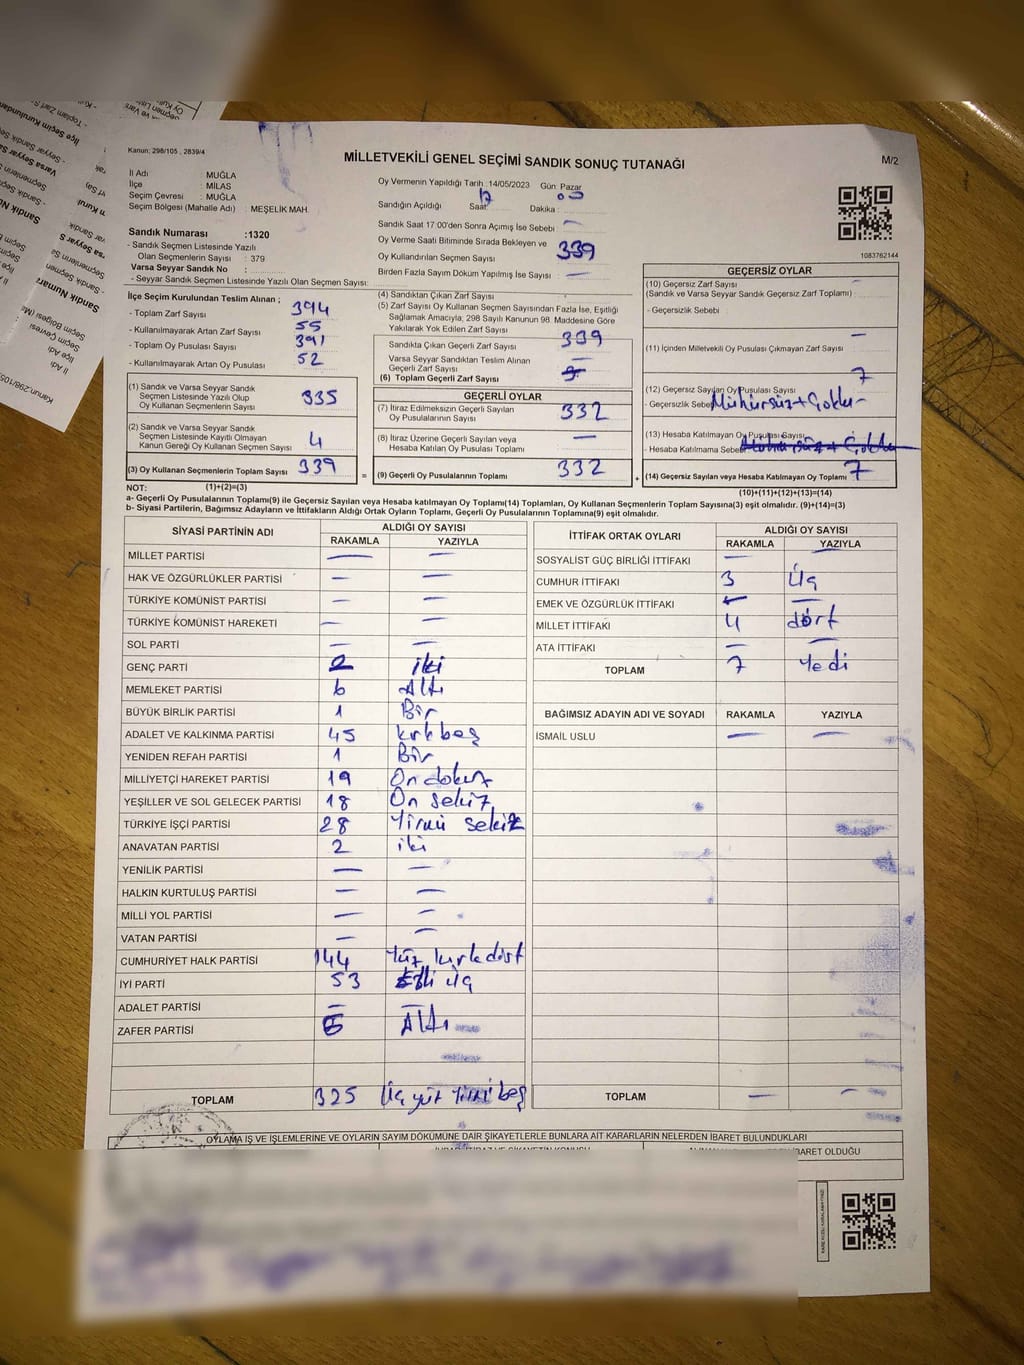 Kanun: 298/105 , 2839/4
MİLLETVEKİLİ GENEL SEÇİMİ SANDIK SONUÇ TUTANAĞI
M/2
İl Adı : MUĞLA
İlçe : MİLAS
Seçim Çevresi : MUĞLA
Seçim Bölgesi (Mahalle Adı) : MEŞELİK MAH.
Oy Vermenin Yapıldığı Tarih :14/05/2023 Gün: Pazar
Sandığın Açıldığı Saat: 17 Dakika : 00
Sandık Saat 17.00'den Sonra Açılmış İse Sebebi —
Oy Verme Saati Bitiminde Sırada Bekleyen ve
Oy Kullandırılan Seçmen Sayısı : 339
Birden Fazla Sayım Döküm Yapılmış İse Sayısı : —
1083762144
Sandık Numarası :1320
- Sandık Seçmen Listesinde Yazılı
Olan Seçmenlerin Sayısı : 379
Varsa Seyyar Sandık No :
- Seyyar Sandık Seçmen Listesinde Yazılı Olan Seçmen Sayısı:
İlçe Seçim Kurulundan Teslim Alınan ;
- Toplam Zarf Sayısı : 394
- Kullanılmayarak Artan Zarf Sayısı : 55
- Toplam Oy Pusulası Sayısı : 391
- Kullanılmayarak Artan Oy Pusulası : 52
(1) Sandık ve Varsa Seyyar Sandık
Seçmen Listesinde Yazılı Olup
Oy Kullanan Seçmenlerin Sayısı 335
(2) Sandık ve Varsa Seyyar Sandık
Seçmen Listesinde Kayıtlı Olmayan
Kanun Gereği Oy Kullanan Seçmen Sayısı 4
(3) Oy Kullanan Seçmenlerin Toplam Sayısı 339
(1)+(2)=(3)
(4) Sandıktan Çıkan Zarf Sayısı
(5) Zarf Sayısı Oy Kullanan Seçmen Sayısından Fazla İse, Eşitliği
Sağlamak Amacıyla; 298 Sayılı Kanunun 98. Maddesine Göre
Yakılarak Yok Edilen Zarf Sayısı
Sandıkta Çıkan Geçerli Zarf Sayısı 339
Varsa Seyyar Sandıktan Teslim Alınan
Geçerli Zarf Sayısı —
(6) Toplam Geçerli Zarf Sayısı
GEÇERLİ OYLAR
(7) İtiraz Edilmeksizin Geçerli Sayılan
Oy Pusulalarının Sayısı 332
(8) İtiraz Üzerine Geçerli Sayılan veya
Hesaba Katılan Oy Pusulası Toplamı —
= (9) Geçerli Oy Pusulalarının Toplamı 332
GEÇERSİZ OYLAR
(10) Geçersiz Zarf Sayısı
(Sandık ve Varsa Seyyar Sandık Geçersiz Zarf Toplamı) :
- Geçersizlik Sebebi
(11) İçinden Milletvekili Oy Pusulası Çıkmayan Zarf Sayısı : —
(12) Geçersiz Sayılan Oy Pusulası Sayısı 7
- Geçersizlik Sebebi Mühürsüz+Çoklu
(13) Hesaba Katılmayan Oy Pusulası Sayısı
- Hesaba Katılmama Sebebi Mühürsüz + Çoklu
+ (14) Geçersiz Sayılan veya Hesaba Katılmayan Oy Toplamı 7
(10)+(11)+(12)+(13)=(14)
NOT:
a- Geçerli Oy Pusulalarının Toplamı(9) ile Geçersiz Sayılan veya Hesaba katılmayan Oy Toplamı(14) Toplamları, Oy Kullanan Seçmenlerin Toplam Sayısına(3) eşit olmalıdır. (9)+(14)=(3)
b- Siyasi Partilerin, Bağımsız Adayların ve İttifakların Aldığı Ortak Oyların Toplamı, Geçerli Oy Pusulalarının Toplamına(9) eşit olmalıdır.
SİYASİ PARTİNİN ADI ALDIĞI OY SAYISI
RAKAMLA YAZIYLA
MİLLET PARTİSİ — —
HAK VE ÖZGÜRLÜKLER PARTİSİ — —
TÜRKİYE KOMÜNİST PARTİSİ — —
TÜRKİYE KOMÜNİST HAREKETİ — —
SOL PARTİ — —
GENÇ PARTİ 2 iki
MEMLEKET PARTİSİ 6 Altı
BÜYÜK BİRLİK PARTİSİ 1 Bir
ADALET VE KALKINMA PARTİSİ 45 kırkbeş
YENİDEN REFAH PARTİSİ 1 Bir
MİLLİYETÇİ HAREKET PARTİSİ 19 On dokuz
YEŞİLLER VE SOL GELECEK PARTİSİ 18 On sekiz
TÜRKİYE İŞÇİ PARTİSİ 28 Yirmi sekiz
ANAVATAN PARTİSİ 2 iki
YENİLİK PARTİSİ — —
HALKIN KURTULUŞ PARTİSİ — —
MİLLİ YOL PARTİSİ — —
VATAN PARTİSİ — —
CUMHURİYET HALK PARTİSİ 144 Yüz kırkdört
İYİ PARTİ 53 Elli üç
ADALET PARTİSİ — —
ZAFER PARTİSİ 6 Altı
TOPLAM 325 Üçyüz Yirmi beş
İTTİFAK ORTAK OYLARI ALDIĞI OY SAYISI
RAKAMLA YAZIYLA
SOSYALİST GÜÇ BİRLİĞİ İTTİFAKI — —
CUMHUR İTTİFAKI 3 Üç
EMEK VE ÖZGÜRLÜK İTTİFAKI — —
MİLLET İTTİFAKI 4 dört
ATA İTTİFAKI — —
TOPLAM 7 Yedi
BAĞIMSIZ ADAYIN ADI VE SOYADI RAKAMLA YAZIYLA
İSMAİL USLU — —
TOPLAM — —
OYLAMA İŞ VE İŞLEMLERİNE VE OYLARIN SAYIM DÖKÜMÜNE DAİR ŞİKAYETLERLE BUNLARA AİT KARARLARIN NELERDEN İBARET BULUNDUKLARI